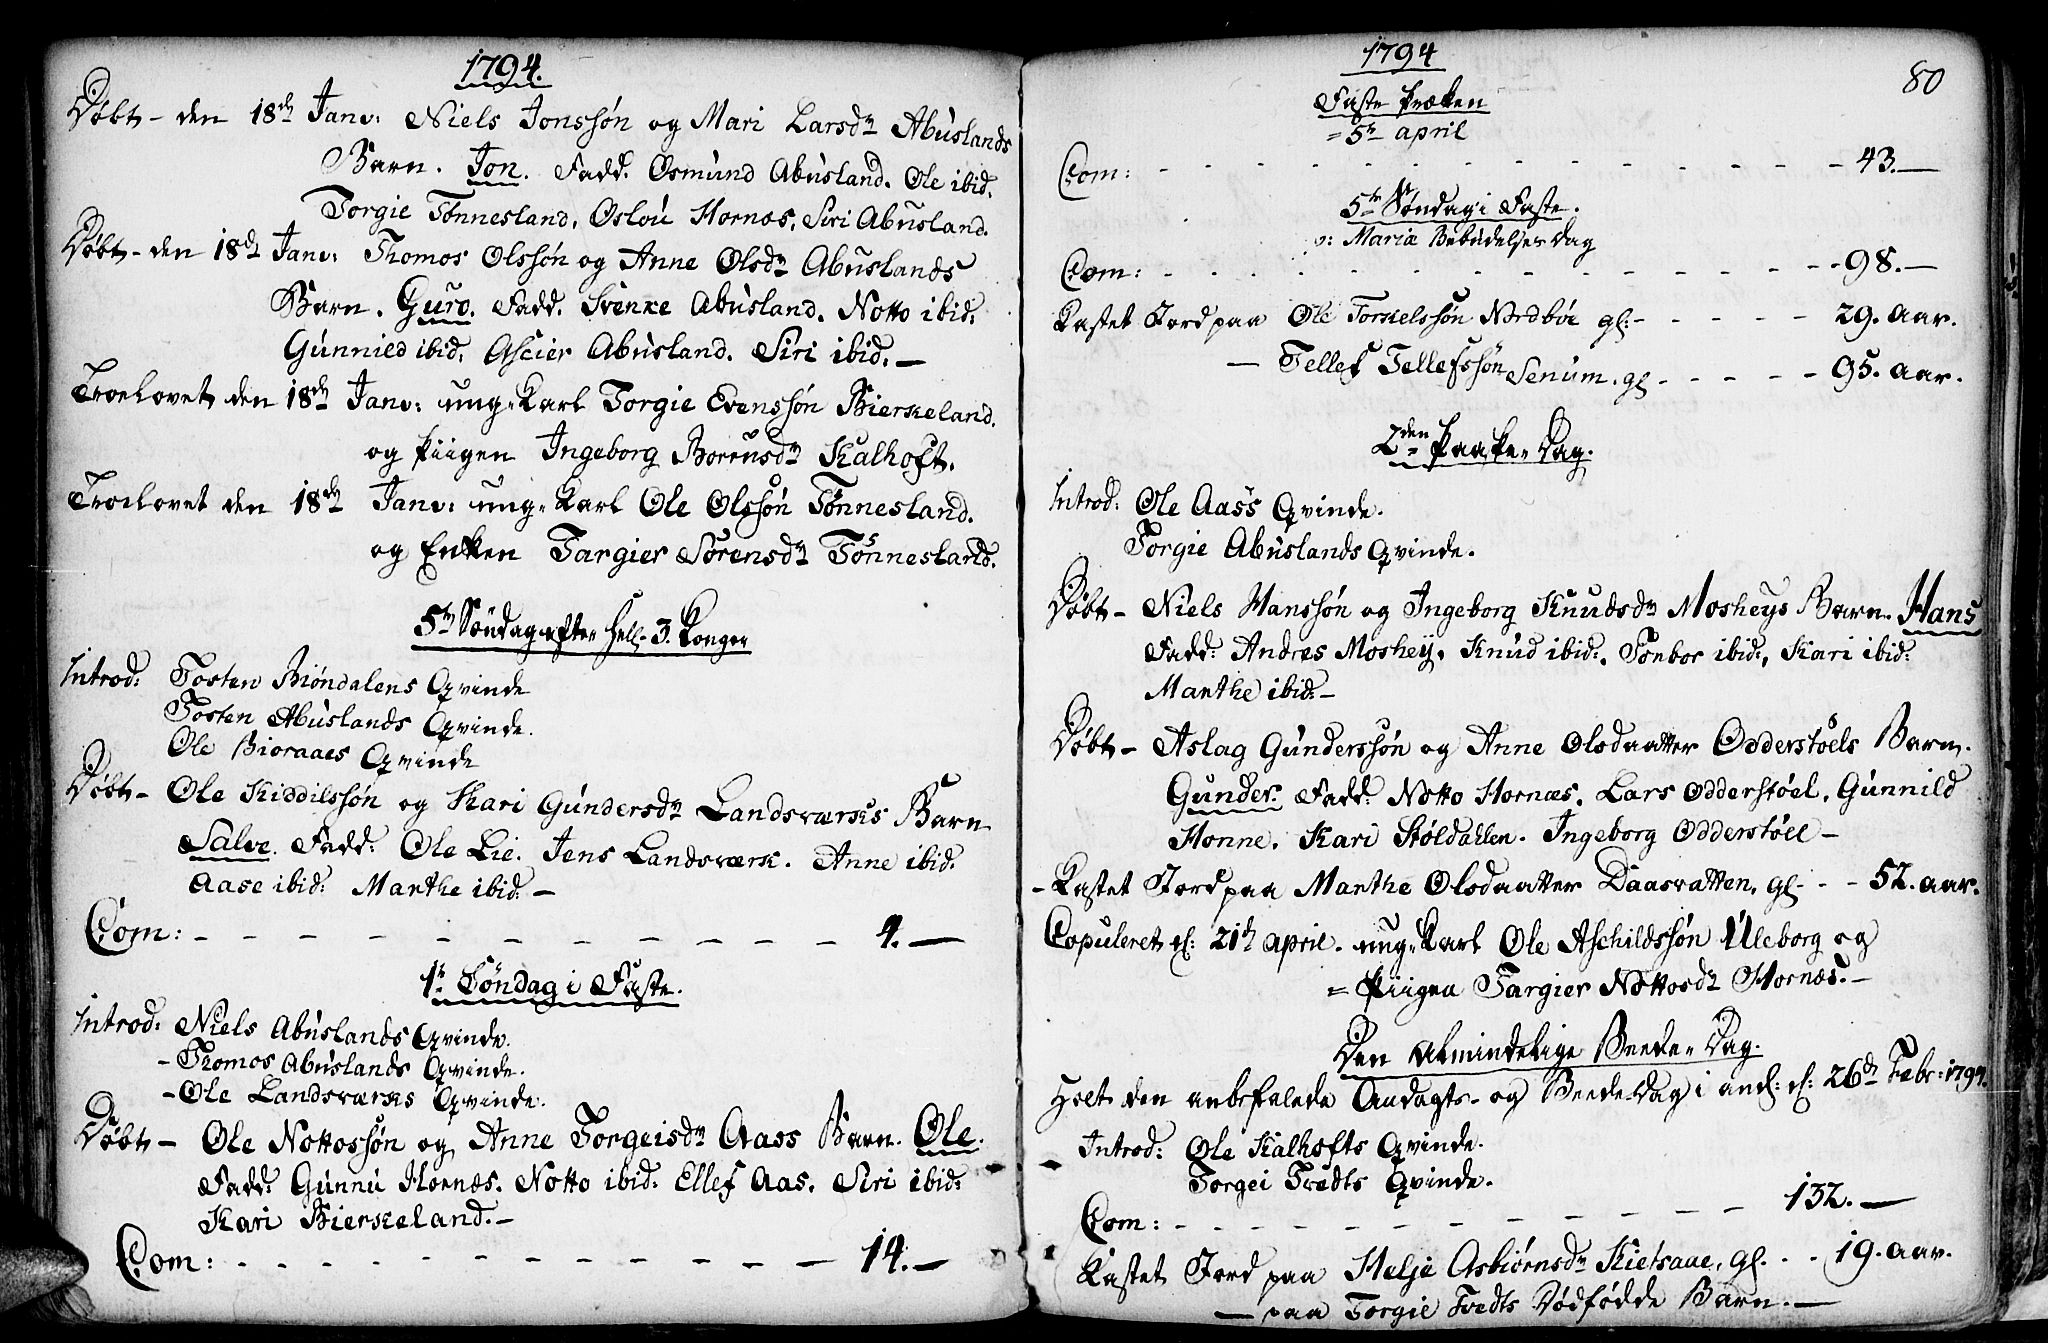 1794.
Döbt - den 18de Janv: Niels Jonssön og Mari Larsdr Abuslands
Barn. Jon. Fadd. Osmund Abusland. Ole ibid.
Torgie Tönnesland, Oslou Hornæs, Siri Abusland.
Döbt - den 18de Janv: Thomos Olssön og Anne Olsdr Abuslands
Barn. Guro. Fadd. Svenke Abusland. Notto ibid.
Gunnied ibid. Ascier Abusland. Siri ibid. -
Troelovet den 18de Janv: ung-Karl Torgie Evenssön Bierkeland.
og Piigen Ingeborg Borrusdr Kalhoft.
Troelovet den 18de Janv: ung-Karl Ole Olssön Tönnesland.
og Enken Targier Sörensdr Tönnesland.
5te Söndag efter Hell- 3. Konger
Introd: Tosten Biöndalens Qvinde
Tosten Abuslands Qvinde.
Ole Bioraaes Qvinde
Döbt - Ole Kiddilssön og Kari Gundersdr Landsværks Barn
Salve. Fadd: Ole Lie. Jens Landsværk. Anne ibid:
Aase ibid: Marthe ibid: -
Com: - - - - - - - - - - - - 4. -
1te Söndag i Faste.
Introd: Niels Abuslands Qvinde.
- Thomos Abuslands Qvinde.
- Ole Landsværks Qvinde.
Döbt - Ole Nottossön og Anne Torgeisdr Aass Barn. Ole.
Fadd: Gunnu Hornæs. Notto ibid. Ellef Aas. Siri ibid:
Kari Bierkeland. -
Com: - - - - - - - - - - - 14. -
1794
80
Faste Præken
= 5te april
Com: - - - - - - - - - - - - - 43. -
5te Söndag i Faste.
o: Mariæ Bebudelses Dag
Com: - - - - - - - - - - - - - 98. -
Kastet Jord paa Ole Torkelssön Nordböe gl: - - - - - 29. Aar.
- Tellef Tellefssön Senum. gl - - - - - 95. Aar.
2den Paaske-Dag.
Introd: Ole Aass Qvinde.
Torgie Abuslands Qvinde.
Döbt - Niels Hanssön og Ingeborg Knudsdr Mosheys Barn. Hans
Fadd: Andres Moshey. Knud ibid:. Tonbor ibid:, Kari ibid:
Marthe ibid: -
Döbt - Aslag Gunderssön og Anne Olsdaatter Odderstöels Barn.
Gunder. Fadd: Notto Hornæs. Lars Odderstöel. Gunnild
Honne. Kari Stöldallen. Ingeborg Odderstöel -
- Kastet Jord paa Marthe Olsdaatter Daasvatten, gl. - - 52. aar.
Copuleret d: 21de april. ung-Karl Ole Aschildssön Uleborg og
= Piigen Targier Nottosdr Hornæs. -
Den Almindelige Beede-Dag.
Holt den anbefalede Andagts- og Beede-Dag i anl: d: 26de Febr: 1794.
Introd: Ole Kalhofts Qvinde.
Torgei Tvedts Qvinde.
Com: - - - - - - - - - - - - 132. -
Kastet Jord paa Helje Asbiörnsdr Kietsaae, gl. - - 19. aar.
- paa Torgie Tvedts Dödfödde Barn. -